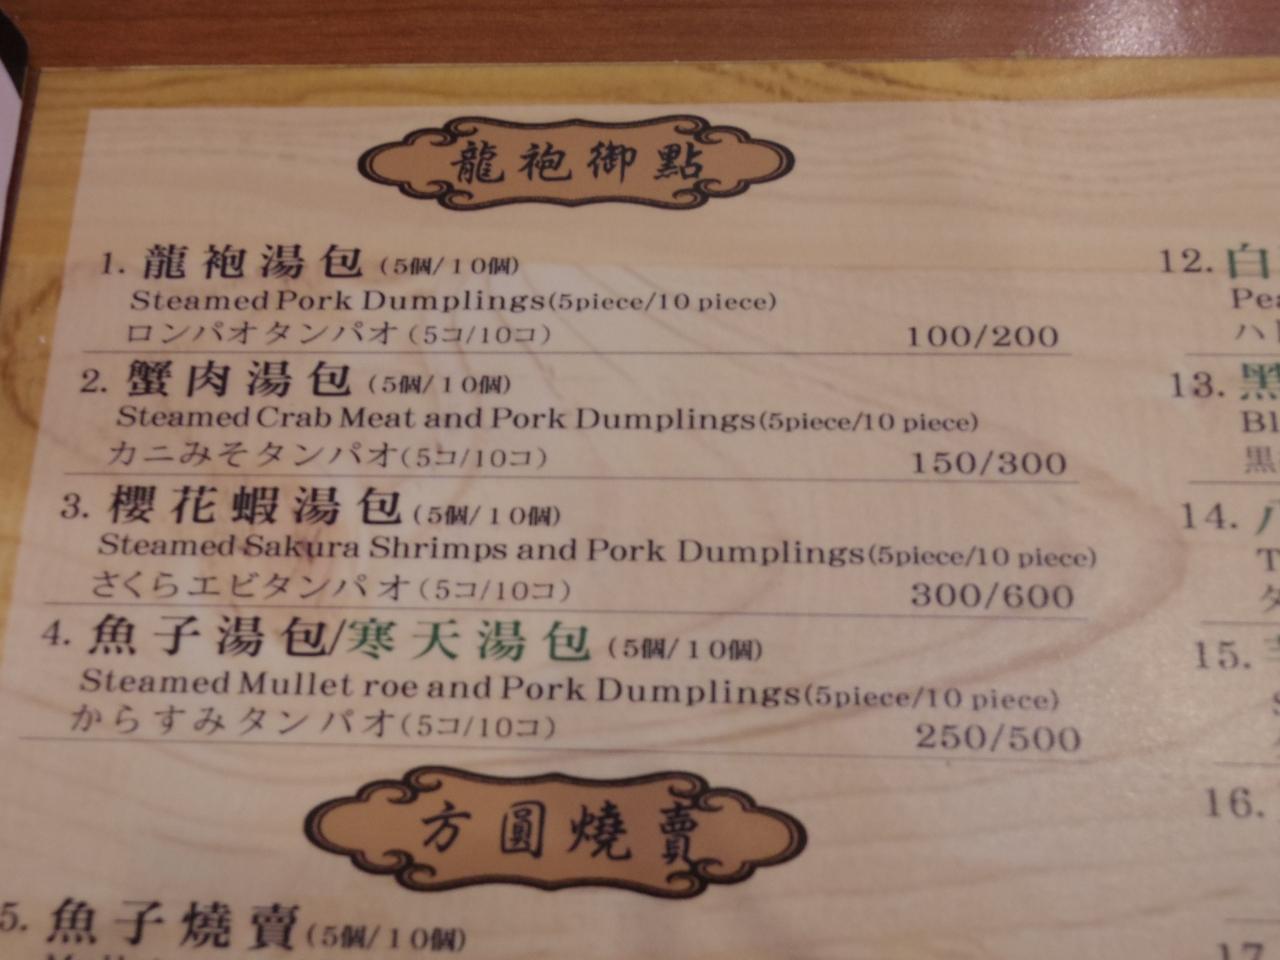 龍袍御點
1. 龍袍湯包 (5個/10個)
Steamed Pork Dumplings(5piece/10 piece)
ロンパオタンパオ (5コ/10コ) 100/200
2. 蟹肉湯包 (5個/10個)
Steamed Crab Meat and Pork Dumplings(5piece/10 piece)
カニみそタンパオ(5コ/10コ) 150/300
3. 櫻花蝦湯包 (5個/10個)
Steamed Sakura Shrimps and Pork Dumplings(5piece/10 piece)
さくらエビタンパオ(5コ/10コ) 300/600
4. 魚子湯包/寒天湯包 (5個/10個)
Steamed Mullet roe and Pork Dumplings(5piece/10 piece)
からすみタンパオ(5コ/10コ) 250/500
方圓燒賣
5. 魚子燒賣(5個/10個)
12. 白
Pea
ハ
13. 黑
Bl
黒
14.
T
タ
15.
16.
17